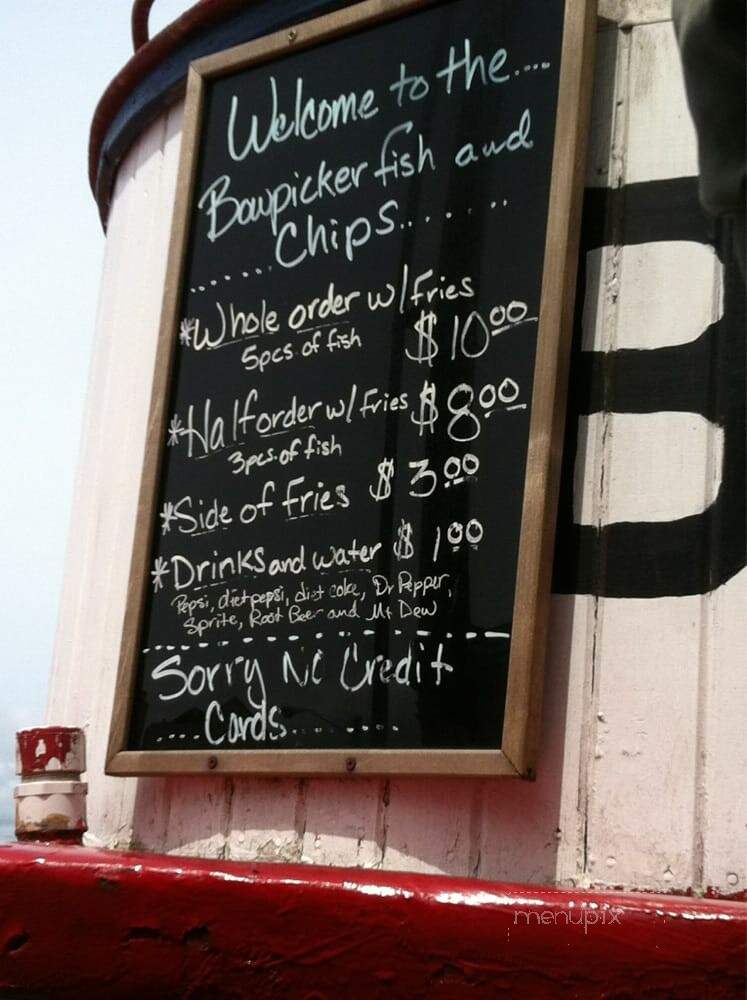 Welcome to the....
Bowpicker fish and
Chips.......
.......
*Whole order w/fries
5pcs of fish $10.00
*Half order w/fries $8.00
3pcs. of fish
*Side of fries $3.00
*Drinks and water $1.00
Pepsi, diet pepsi, diet coke, Dr Pepper,
Sprite, Root Beer and Mt Dew
Sorry No Credit
....Cards.......
B
menupix